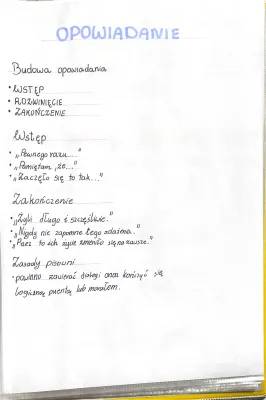 OPOWIADANIE
Budowa opowiadania
• WSTĘP
• ROZWINIĘCIE
• ZAKOŃCZENIE
Wstęp
• „Pewnego razu..."
• „Pamiętam, że..."
• „Zaczęło się to tak..."
Zakończenie
• „Żyli długo i szczęśliwie."
• „Nigdy nie zapomnę tego zdarzenia."
• to ich życie zmieniło się na zawsze."
Zasady
• powinno zawierać dialogi oraz kończyć się
logiczną puentą lub morałem.